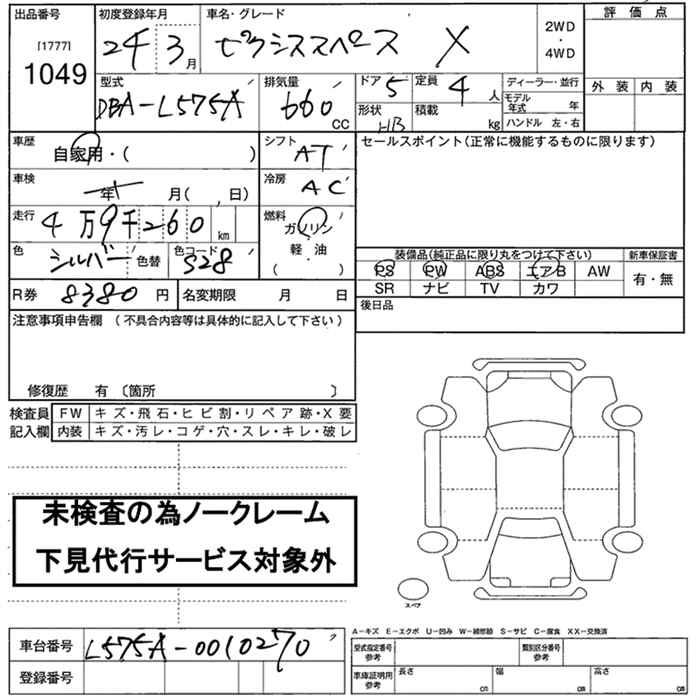 出品番号
[1777]
1049
初度登録年月
24年 3月
車名・グレード
ピクシススペース X
2WD
・
4WD
評価点
外装 内装
型式
DBA-L575A
排気量
660 CC
ドア 5
定員 4 人
形状 HB
積載 kg
ディーラー・並行
モデル年式 年
ハンドル 左・右
車歴
自家用・( )
シフト AT
セールスポイント(正常に機能するものに限ります)
車検
年 月( 、日)
冷房 AC
走行
4万9千260 km
燃料
ガソリン
軽・油
( )
色
シルバー
色替
色コード
S28
装備品(純正品に限り丸をつけて下さい)
新車保証書
PS PW ABS エアB AW
SR ナビ TV カワ
有・無
R券 8380 円
名変期限 月 日
後日品
注意事項申告欄 (不具合内容等は具体的に記入して下さい)
修復歴 有 〔箇所 〕
検査員記入欄
FW キズ・飛石・ヒビ割・リペア跡・X要
内装 キズ・汚レ・コゲ・穴・スレ・キレ・破レ
未検査の為ノークレーム
下見代行サービス対象外
スペア
A-キズ E-エクボ U-凹み W-補修跡 S-サビ C-腐食 XX-交換済
車台番号 L575A-0010270
登録番号
型式指定番号
参考
類別区分番号
参考
車庫証明用
参考
長さ cm
幅 cm
高さ cm